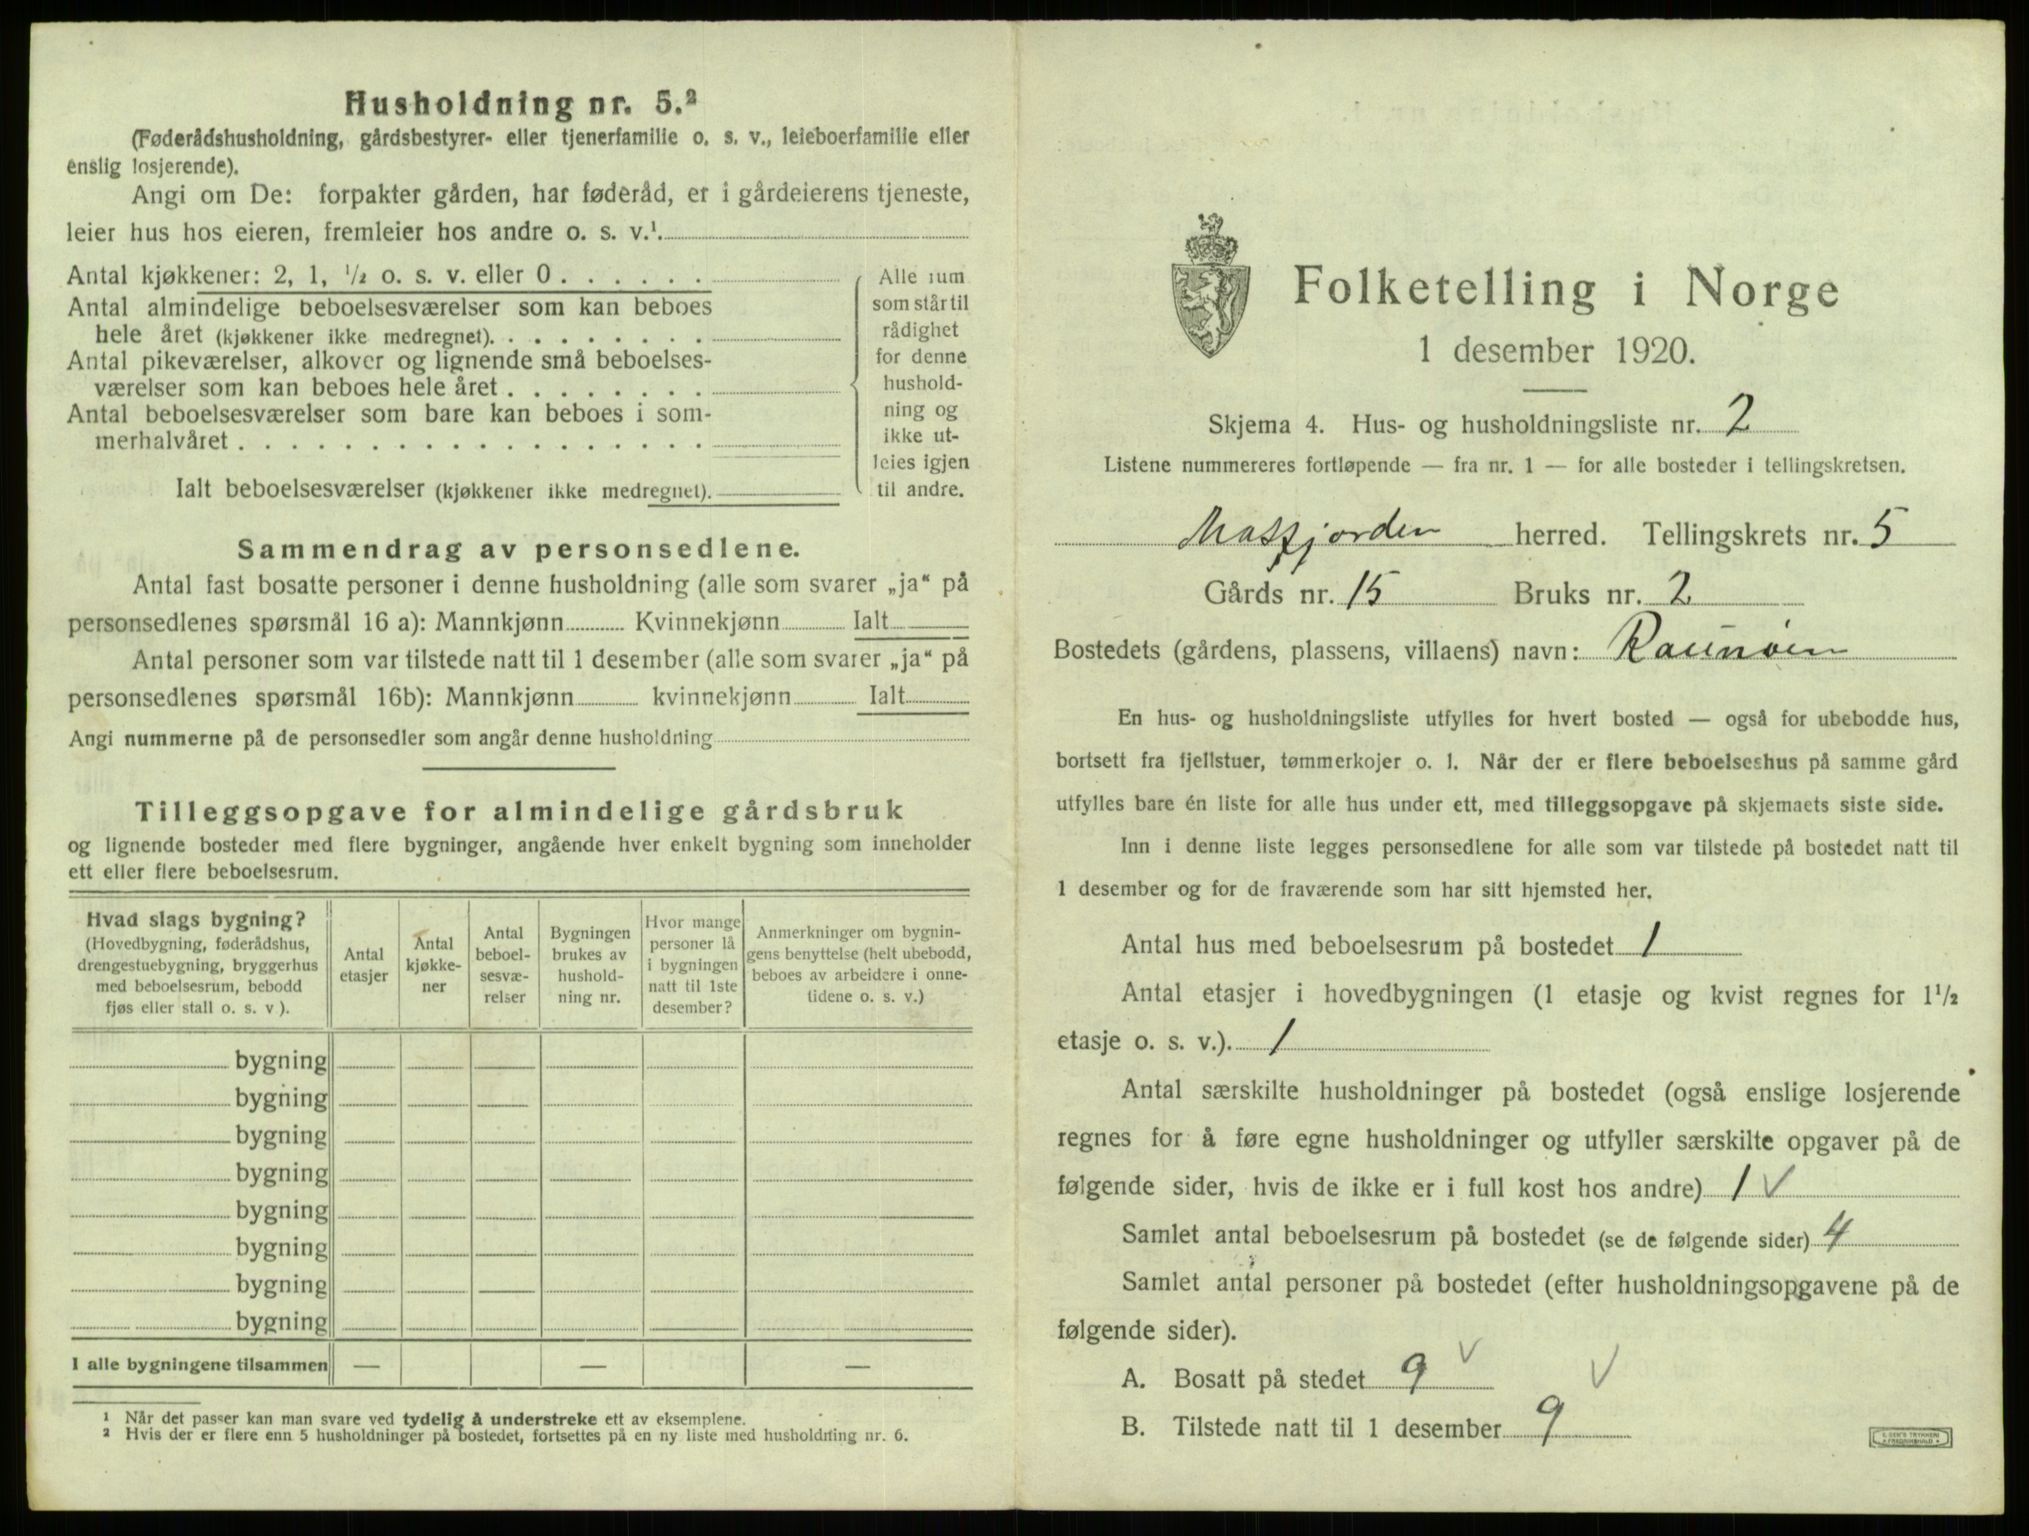 Husholdning nr. 5.²
(Føderådshusholdning, gårdsbestyrer- eller tjenerfamilie o. s. v., leieboerfamilie eller
enslig losjerende).
Angi om De: forpakter gården, har føderåd, er i gårdeierens tjeneste,
leier hus hos eieren, fremleier hos andre o. s. v.¹.
Antal kjøkkener: 2, 1, ½ o. s. v. eller 0 . . . . . .
Antal almindelige beboelsesværelser som kan beboes
hele året (kjøkkener ikke medregnet). . . . . . . . .
Antal pikeværelser, alkover og lignende små beboelses-
værelser som kan beboes hele året . . . . . . . .
Antal beboelsesværelser som bare kan beboes i som-
merhalvåret . . . . . . . . . . . . . . . . . .
Ialt beboelsesværelser (kjøkkener ikke medregnet).
Alle rum
som står til
rådighet
for denne
hushold-
ning og
ikke ut-
leies igjen
til andre.
Sammendrag av personsedlene.
Antal fast bosatte personer i denne husholdning (alle som svarer „ja“ på
personsedlenes spørsmål 16 a): Mannkjønn Kvinnekjønn Ialt
Antal personer som var tilstede natt til 1 desember (alle som svarer „ja“ på
personsedlenes spørsmål 16b): Mannkjønn kvinnekjønn Ialt
Angi nummerne på de personsedler som angår denne husholdning
Tilleggsopgave for almindelige gårdsbruk
og lignende bosteder med flere bygninger, angående hver enkelt bygning som inneholder
ett eller flere beboelsesrum.
Hvad slags bygning?
(Hovedbygning, føderådshus,
drengestuebygning, bryggerhus
med beboelsesrum, bebodd
fjøs eller stall o. s. v ).
Antal
etasjer
Antal
kjøkke-
ner
Antal
beboel-
sesvæ-
relser
Bygningen
brukes av
hushold-
ning nr.
Hvor mange
personer lå
i bygningen
natt til 1ste
desember?
Anmerkninger om bygnin-
gens benyttelse (helt ubebodd,
beboes av arbeidere i onne-
tidene o. s. v.)
bygning
bygning
bygning
bygning
bygning
bygning
bygning
bygning
I alle bygningene tilsammen — — —
¹ Når det passer kan man svare ved tydelig å understreke ett av eksemplene.
² Hvis der er flere enn 5 husholdninger på bostedet, fortsettes på en ny liste med husholdning nr. 6.
Folketelling i Norge
1 desember 1920.
Skjema 4. Hus- og husholdningsliste nr. 2
Listene nummereres fortløpende — fra nr. 1 — for alle bosteder i tellingskretsen.
Masfjorden herred. Tellingskrets nr. 5
Gårds nr. 15 Bruks nr. 2
Bostedets (gårdens, plassens, villaens) navn: Raunøen
En hus- og husholdningsliste utfylles for hvert bosted — også for ubebodde hus,
bortsett fra fjellstuer, tømmerkojer o. l. Når der er flere beboelseshus på samme gård
utfylles bare én liste for alle hus under ett, med tilleggsopgave på skjemaets siste side.
Inn i denne liste legges personsedlene for alle som var tilstede på bostedet natt til
1 desember og for de fraværende som har sitt hjemsted her.
Antal hus med beboelsesrum på bostedet 1
Antal etasjer i hovedbygningen (1 etasje og kvist regnes for 1½
etasje o. s. v.). 1
Antal særskilte husholdninger på bostedet (også enslige losjerende
regnes for å føre egne husholdninger og utfyller særskilte opgaver på de
følgende sider, hvis de ikke er i full kost hos andre) 1 ✓
Samlet antal beboelsesrum på bostedet (se de følgende sider) 4
Samlet antal personer på bostedet (efter husholdningsopgavene på de
følgende sider).
A. Bosatt på stedet 9 ✓ ✓
B. Tilstede natt til 1 desember 9